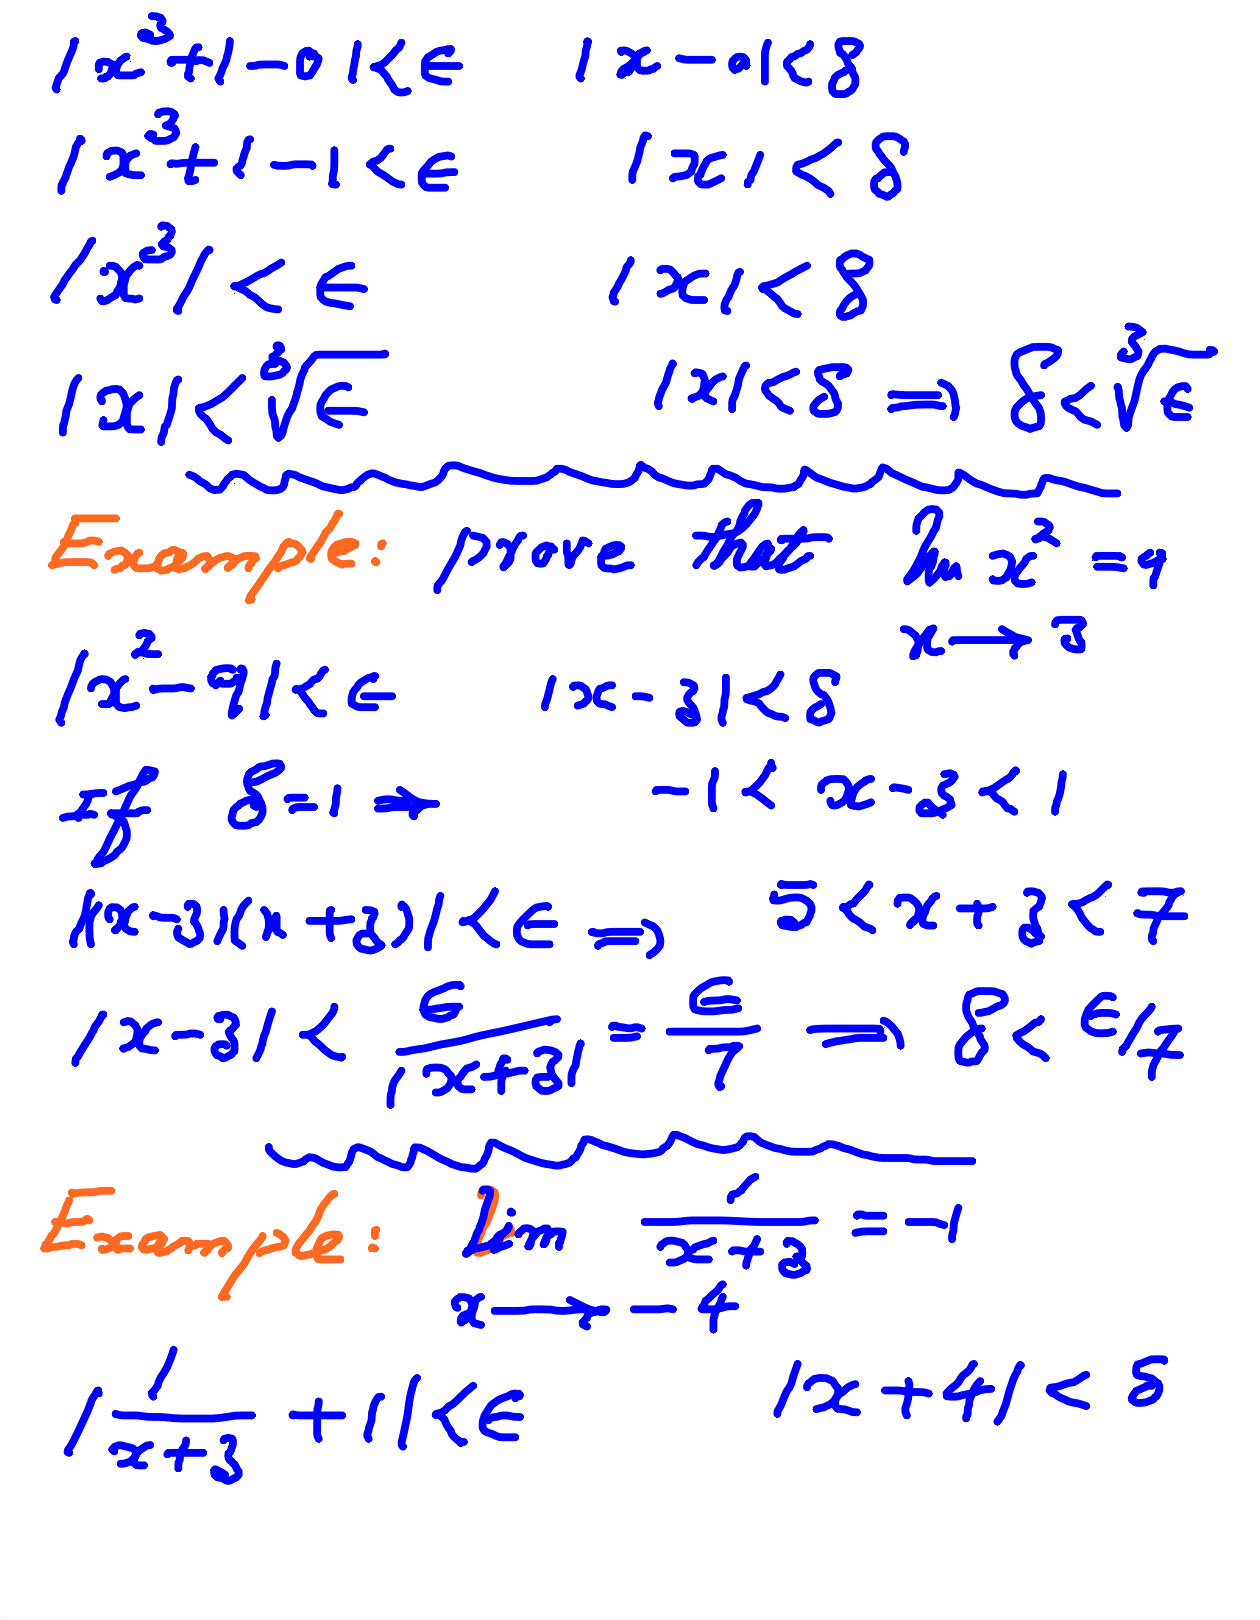 |x³+1-0|<ϵ |x-0|<δ
|x³+1-1<ϵ |x|<δ
|x³|<ϵ |x|<δ
|x|<∛ϵ |x|<δ ⇒ δ<∛ϵ
Example: prove that lim x² = 9
x → 3
|x²-9|<ϵ |x-3|<δ
If δ=1 ⇒ -1< x-3<1
|(x-3)(x+3)|<ϵ ⇒ 5<x+3<7
|x-3|< ϵ/|x+3| = ϵ/7 ⇒ δ< ϵ/7
Example: Lim 1/(x+3) = -1
x → -4
|1/(x+3) +1|<ϵ |x+4|< δ